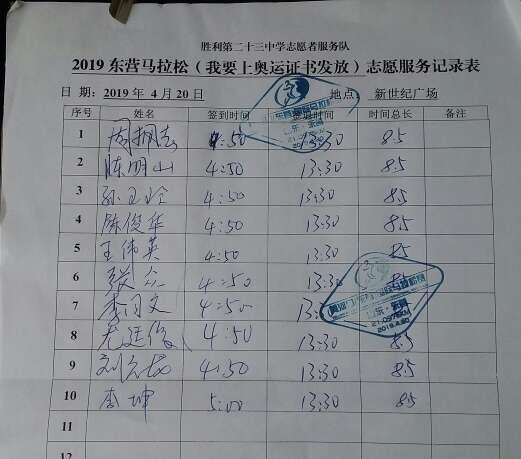 胜利第二十三中学志愿者服务队
2019 东营马拉松（我要上奥运证书发放）志愿服务记录表
日 期: 2019 年 4 月 20 日 地点: 新世纪广场
序号 姓名 签到时间 时间 时间总长 备注
1 4:50 13:30 8.5
2 陈明山 4:50 13:30 8.5
3 4:50 13:30 8.5
4 陈俊华 4:50 13:30 8.5
5 王伟英 4:50 13:30 8.5
6 张 4:50
7 李闪文 4:50 13:
8 4:50 13:30 8.5
9 刘 4:50 13:30 8.5
10 李坤 5:00 13:30 8.5
11
12